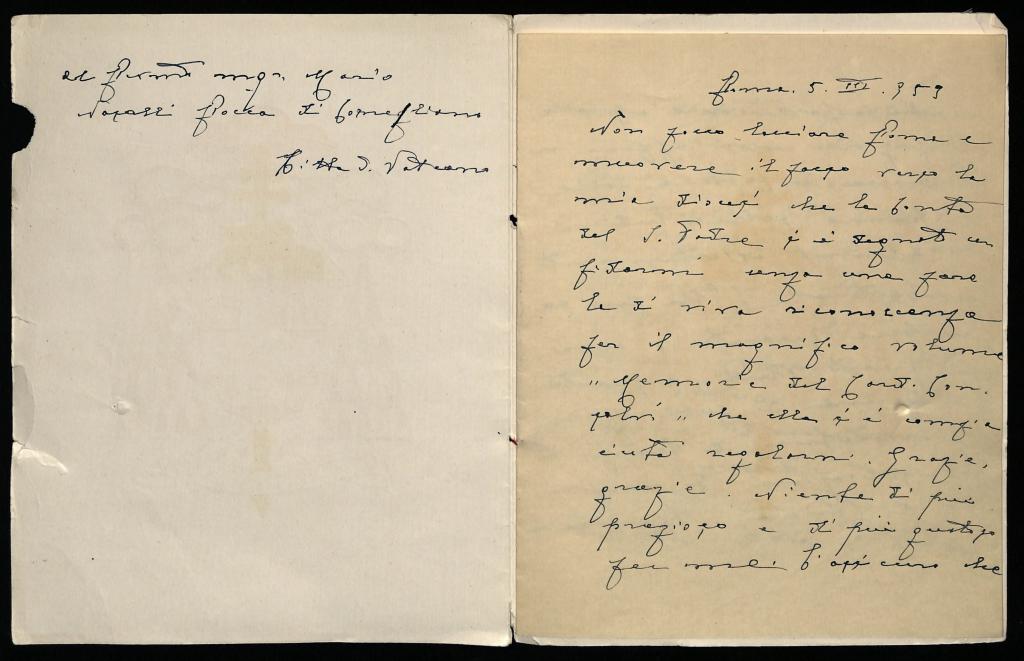 al Rev.mo mgr. Mario
Nasalli Rocca di Corneliano
Città d. Vaticano
Roma. 5. III. 959
Non posso lasciare Roma e
muovere il passo verso la
mia diocesi che la bontà
del S. Padre si è degnata con
fidarmi senza una paro
la di viva riconoscenza
per il magnifico volume
„ Memorie del Card. Con
salvi „ che ella si è compia
ciuta regalarmi. Grazie,
grazie. Niente di più
prezioso e di più gustoso
per me. L'assicuro che